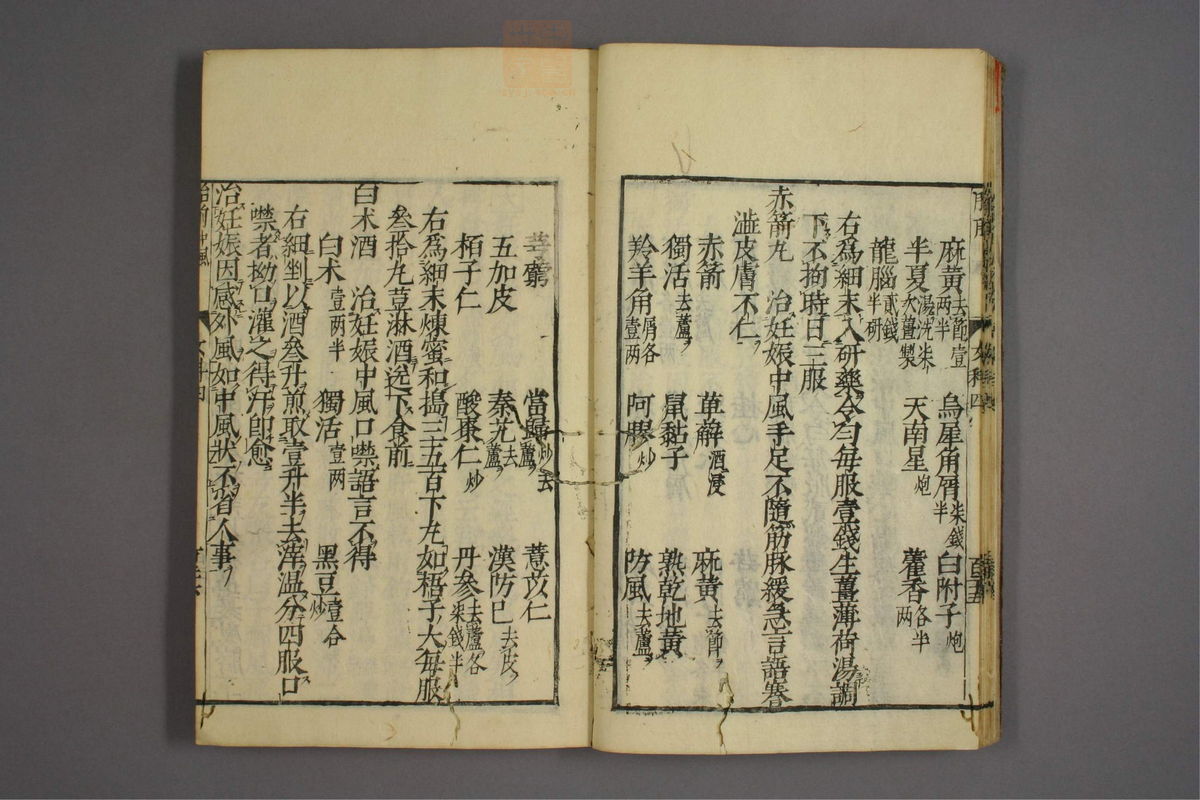 麻黄去節壹两半 烏犀角屑柒錢半 白附子炮
半夏湯洗柒次薑製 天南星炮 藿香各半两
龍腦貳錢半研
右爲細末入研藥令匀每服壹錢生薑薄荷湯調
下不拘時日三服
赤箭丸 治妊娠中風手足不隨筋脉緩急言語蹇
澁皮膚不仁
赤箭 萆薢酒浸 麻黄去節
獨活去蘆 鼠黏子 熟乾地黄
羚羊角屑各壹两 阿膠炒 防風去蘆
芎藭 當歸炒去蘆 薏苡仁
五加皮 秦艽去蘆 漢防己去皮
栢子仁 酸棗仁炒 丹參去蘆各柒錢半
右爲細末煉蜜和搗三五百下丸如梧子大每服
叁拾丸荳淋酒送下食前
白术酒 治妊娠中風口噤語言不得
白术壹两半 獨活壹两 黑豆壹合炒
右細剉以酒叁升煎取壹升半去滓温分四服口
噤者拗口灌之得汗即愈
治妊娠因感外風如中風狀不省人事